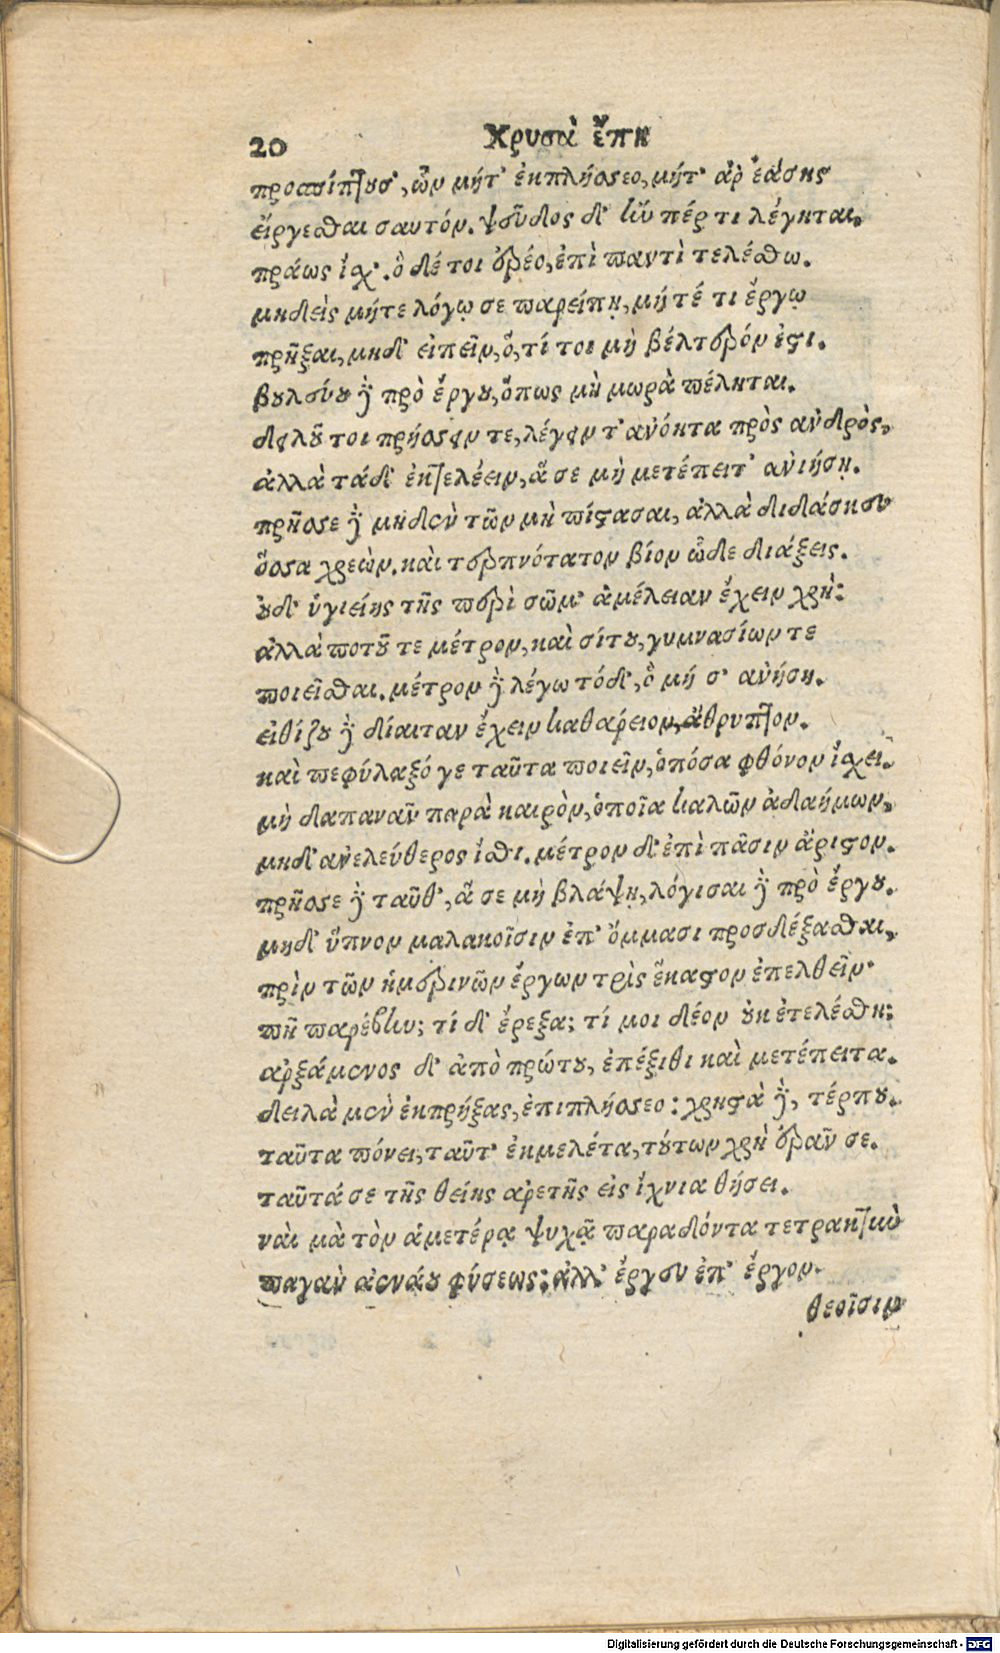 20 Χρυσὰ ἔπη
προσπίπτουσ', ὧν μήτ' ἐκπλήσσεο, μήτ' ἀρ' ἐάσῃς
εἴργεσθαι σαυτόν. ψεῦδος δ' ἤν πέρ τι λέγηται.
πράως ἴσχ'. ὃ δέ τοι ἐρέο, ἐπὶ παντὶ τελέσθω.
μηδεὶς μήτε λόγῳ σε παρείπῃ, μήτέ τι ἔργῳ
πρῆξαι, μηδ' εἰπεῖν, ὅ, τί τοι μὴ βέλτερόν ἐστι.
βουλεύου δὲ πρὸ ἔργου, ὅπως μὴ μωρὰ πέληται.
δειλοῦ τοι πρήσσειν τε, λέγειν τ' ἀνόητα πρὸς ἀνδρὸς.
ἀλλὰ τάδ' ἐκτελέειν, ἅ σε μὴ μετέπειτ' ἀνιήσῃ.
πρῆσσε δὲ μηδὲν τῶν μὴ πίστασαι, ἀλλὰ διδάσκευ
ὅσσα χρεὼν. καὶ τερπνότατον βίον ὧδε διάξεις.
οὐδ' ὑγιείης τῆς περὶ σῶμ' ἀμέλειαν ἔχειν χρή:
ἀλλὰ ποτοῦ τε μέτρον, καὶ σίτου, γυμνασίων τε
ποιεῖσθαι. μέτρον δὲ λέγω τόδ', ὃ μή σ' ἀνήσῃ.
εἰθίζου δὲ δίαιταν ἔχειν καθάρειον, ἄθρυπτον.
καὶ πεφύλαξό γε ταῦτα ποιεῖν, ὁπόσα φθόνον ἴσχει.
μὴ δαπανᾶν παρὰ καιρὸν, ὁποῖα καλῶν ἀδαήμων.
μηδ' ἀνελεύθερος ἴσθι. μέτρον δ' ἐπὶ πᾶσιν ἄριστον.
πρῆσσε δὲ ταῦθ', ἅ σε μὴ βλάψῃ, λόγισαι δὲ πρὸ ἔργου.
μηδ' ὕπνον μαλακοῖσιν ἐπ' ὄμμασι προσδέξασθαι,
πρὶν τῶν ἡμερινῶν ἔργων τρὶς ἕκαστον ἐπελθεῖν·
πῆ παρέβην; τί δ' ἔρεξα; τί μοι δέον οὐκ ἐτελέσθη;
ἀρξάμενος δ' ἀπὸ πρώτου, ἐπέξιθι καὶ μετέπειτα.
δειλὰ μὲν ἐκπρήξας, ἐπιπλήσσεο: χρηστὰ δὲ, τέρπου.
ταῦτα πόνει, ταῦτ' ἐκμελέτα, τούτων χρὴ ἐρᾶν σε.
ταῦτά σε τῆς θείης ἀρετῆς εἰς ἴχνια θήσει.
ναὶ μὰ τὸν ἁμετέρᾳ ψυχᾷ παραδόντα τετρακτὺν
παγὰν ἀενάου φύσεως: ἀλλ' ἔργευ ἐπ' ἔργον.
θεοῖσιν
Digitalisierung gefördert durch die Deutsche Forschungsgemeinschaft - DFG